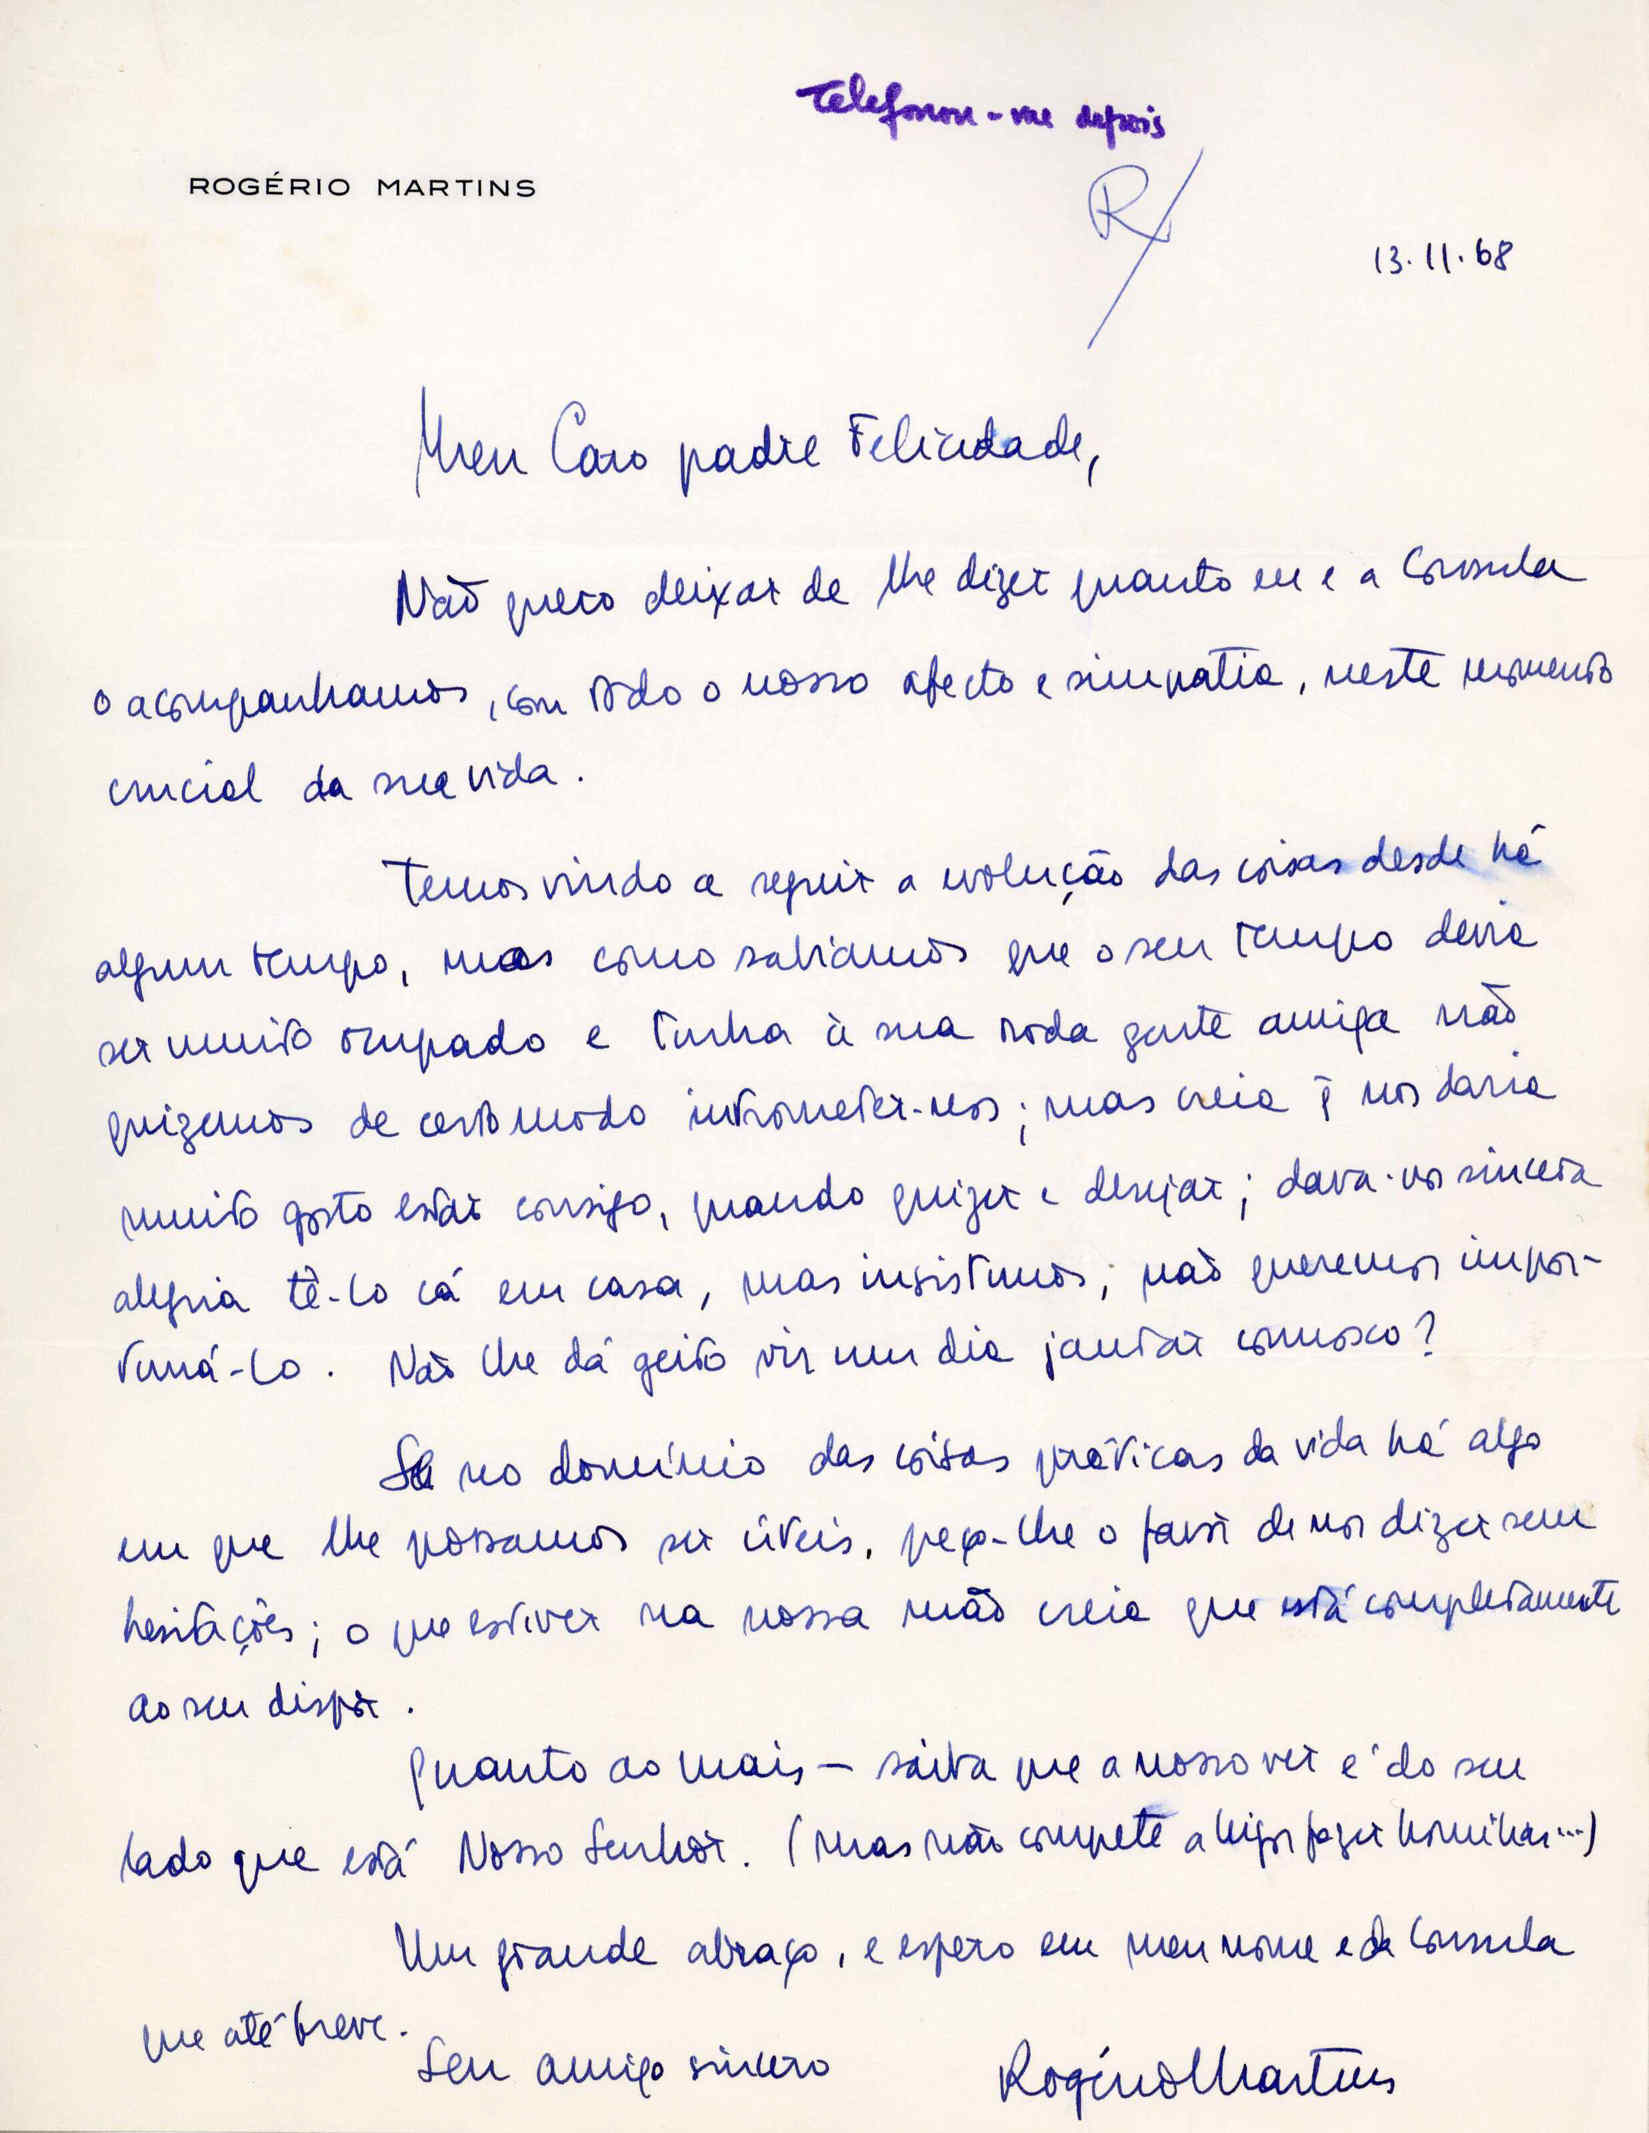 Telefonou-me depois
ROGÉRIO MARTINS
R
13.11.68
Meu Caro padre Felicidade,
Não quero deixar de lhe dizer quanto eu e a Consula
o acompanhamos, com todo o nosso afecto e simpatia, neste momento
crucial da sua vida.
Temos vindo a seguir a evolução das coisas desde há
algum tempo, mas como sabiamos que o seu tempo devia
ser muito ocupado e tinha à sua roda gente amiga não
quizemos de certo modo intrometer-nos; mas creia q̃ nos daria
muito gosto estar consigo, quando quizer e desejar; dava-nos sincera
alegria tê-lo cá em casa, mas insistimos; não queremos impor-
tuná-lo. Não lhe dá geito vir um dia jantar connosco?
Se no domínio das coisas práticas da vida há algo
em que lhe possamos ser úteis, peço-lhe o favor de nos dizer sem
hesitações; o que estiver na nossa mão creia que está completamente
ao seu dispôr.
Quanto ao mais — saiba que a nosso ver é do seu
lado que está Nosso Senhor. (mas não compete a leigos fazer homilias...)
Um grande abraço, e espero em meu nome e da Consula
que até breve.
Seu amigo sincero
Rogério Martins